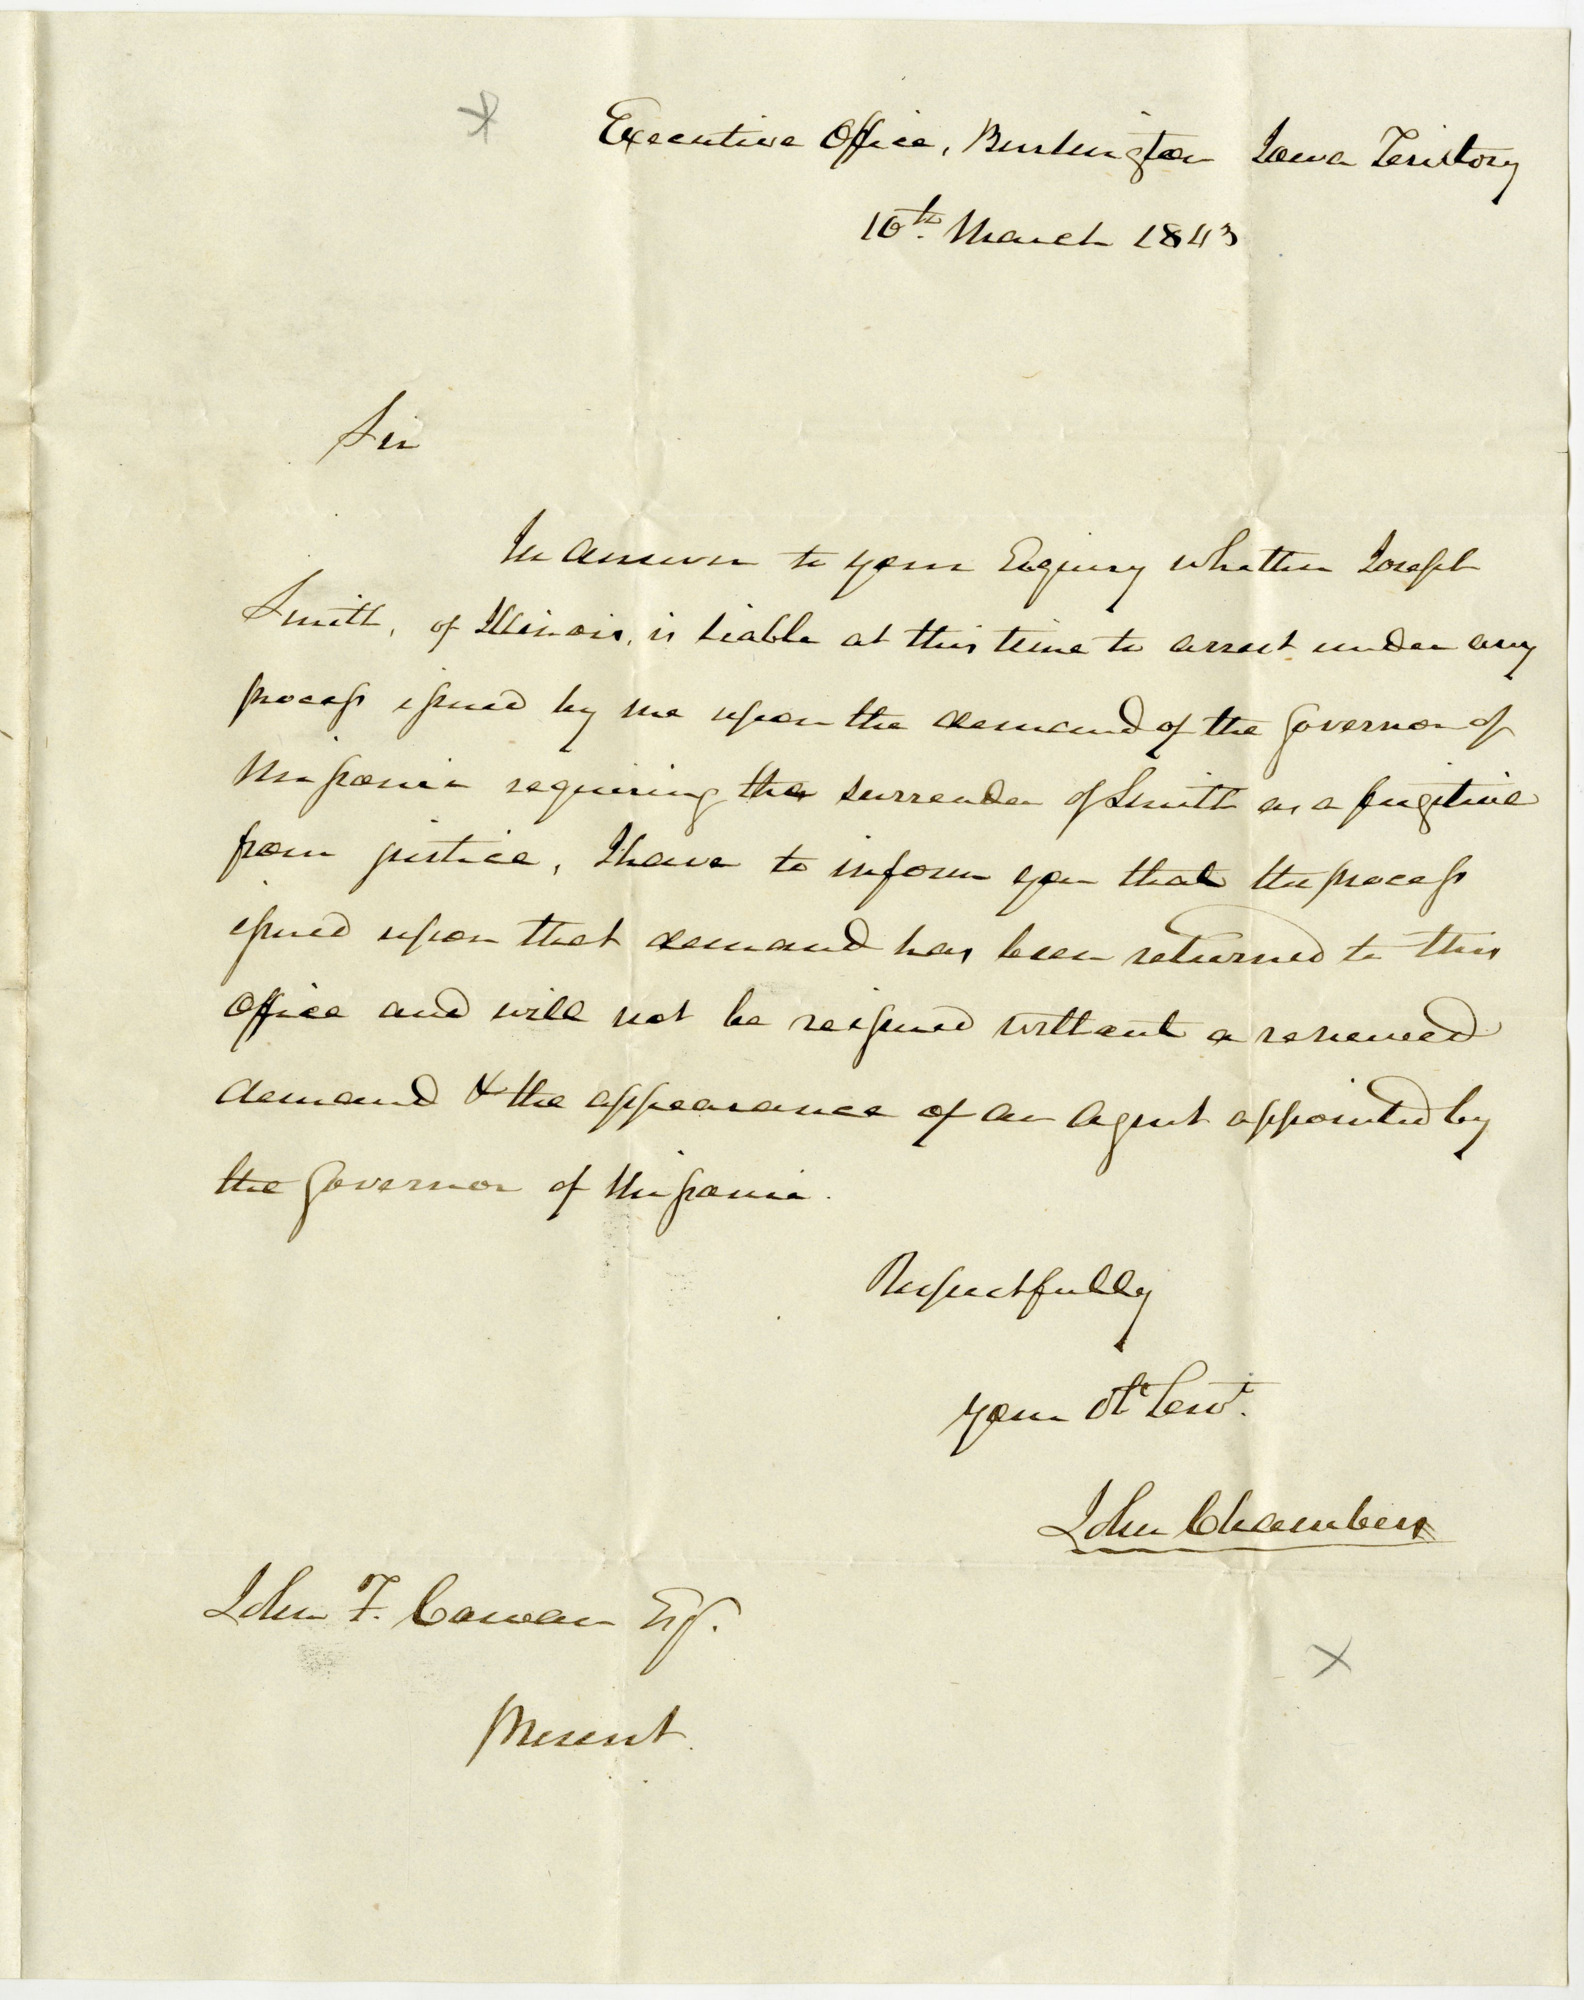 Executive Office, Burlington Iowa Teritory
10th. March 1843
Sir
In answer to your Enquiry whether Joseph
Smith, of Illinois, is liable at this time to arrest under any
process issued by me upon the demand of the Governor of
Missouri requiring the surrender of Smith as a fugitive
from justice, I have to inform you that the process
issued upon that demand has been returned to this
office and will not be reissued without a renewed
demand & the appearance of an agent appointed by
the Governor of Missouri.
Respectfully
your Ob.t Serv.t
John Chambers
John F. Cowan Esq.
Present.